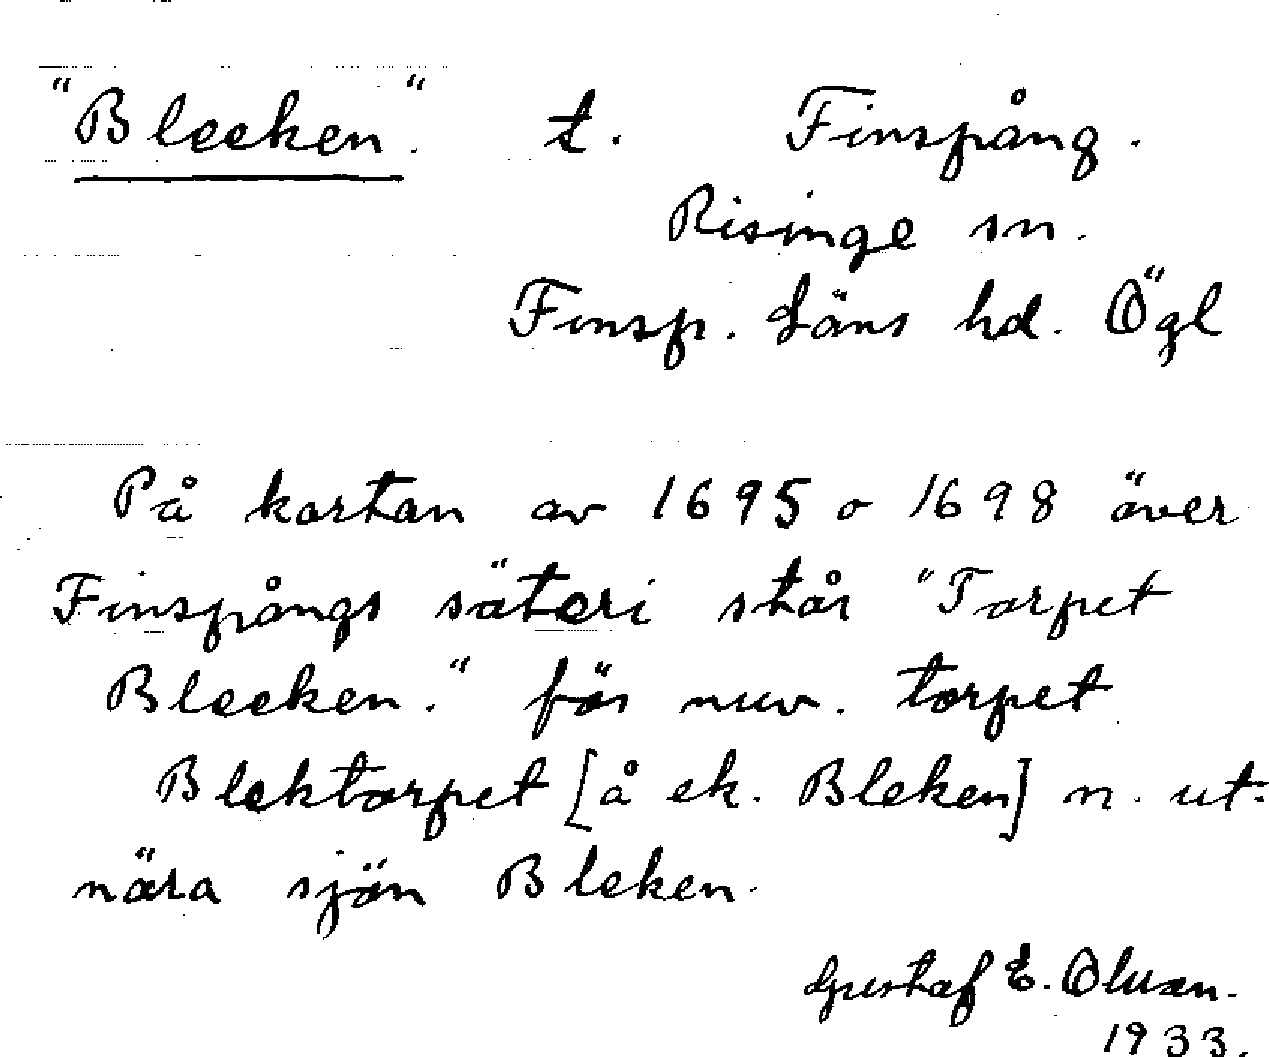 "Bleeken". t. Finspång.
Risinge sn.
Finsp. Läns hd. Ögl
På kartan av 1695 o 1698 över
Finspångs säteri står "Torpet
Bleeken." för nuv. torpet
Blektorpet [å ek. Bleken] n. ut.
nära sjön Bleken.
Gustaf E. Olsson.
1933.